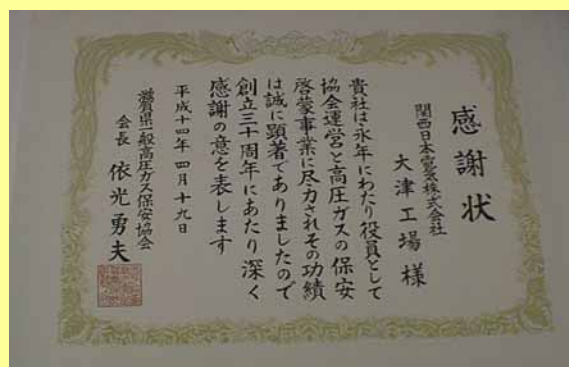 感謝状
関西日本電気株式会社
大津工場様
貴社は永年にわたり役員として
協会運営と高圧ガスの保安
啓蒙事業に尽力されその功績
は誠に顕著でありましたので
創立三十周年にあたり深く
感謝の意を表します
平成十四年四月十九日
滋賀県一般高圧ガス保安協会
会長 依光勇夫